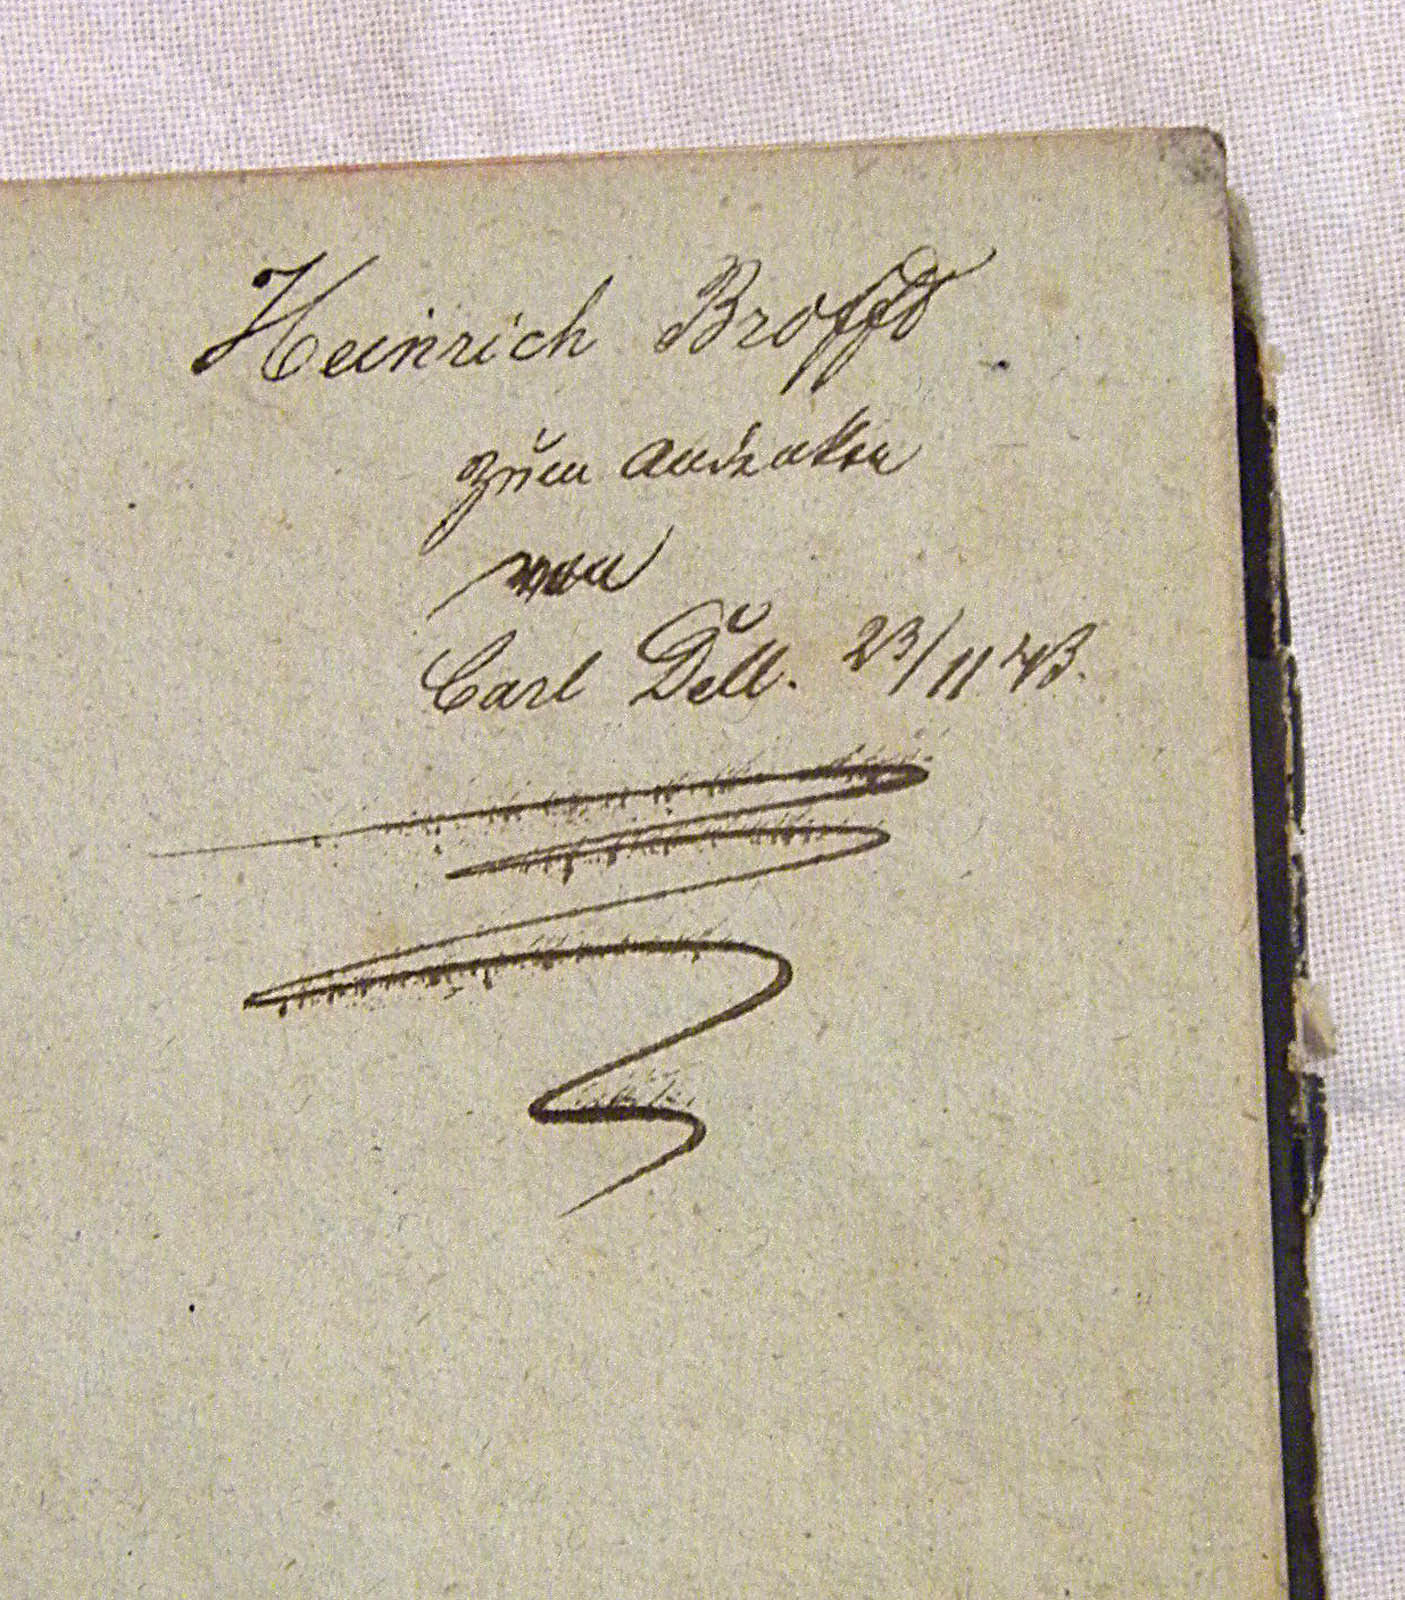 Heinrich
zum andenken
von
Carl Düll. 23/11 73.